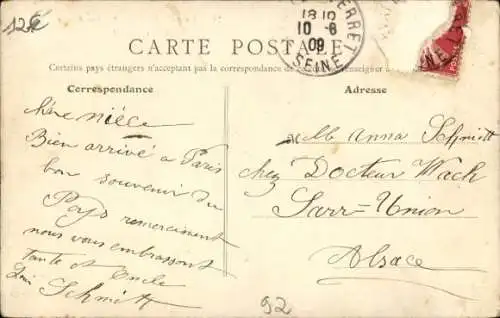 12€
CARTE POSTALE
Certains pays étrangers n'acceptant pas la correspondance de
Correspondance
Adresse
PERRET
18 10
10-8
09
SEINE
chère nièce
Bien arrivé a Paris
bon souvenir du
Pays remerciment
nous vous embrassont
Tante et Oncle
Schmitt
Mlle Anna Schmitt
chez Docteur Wach
Sarr-Union
Alsace
92